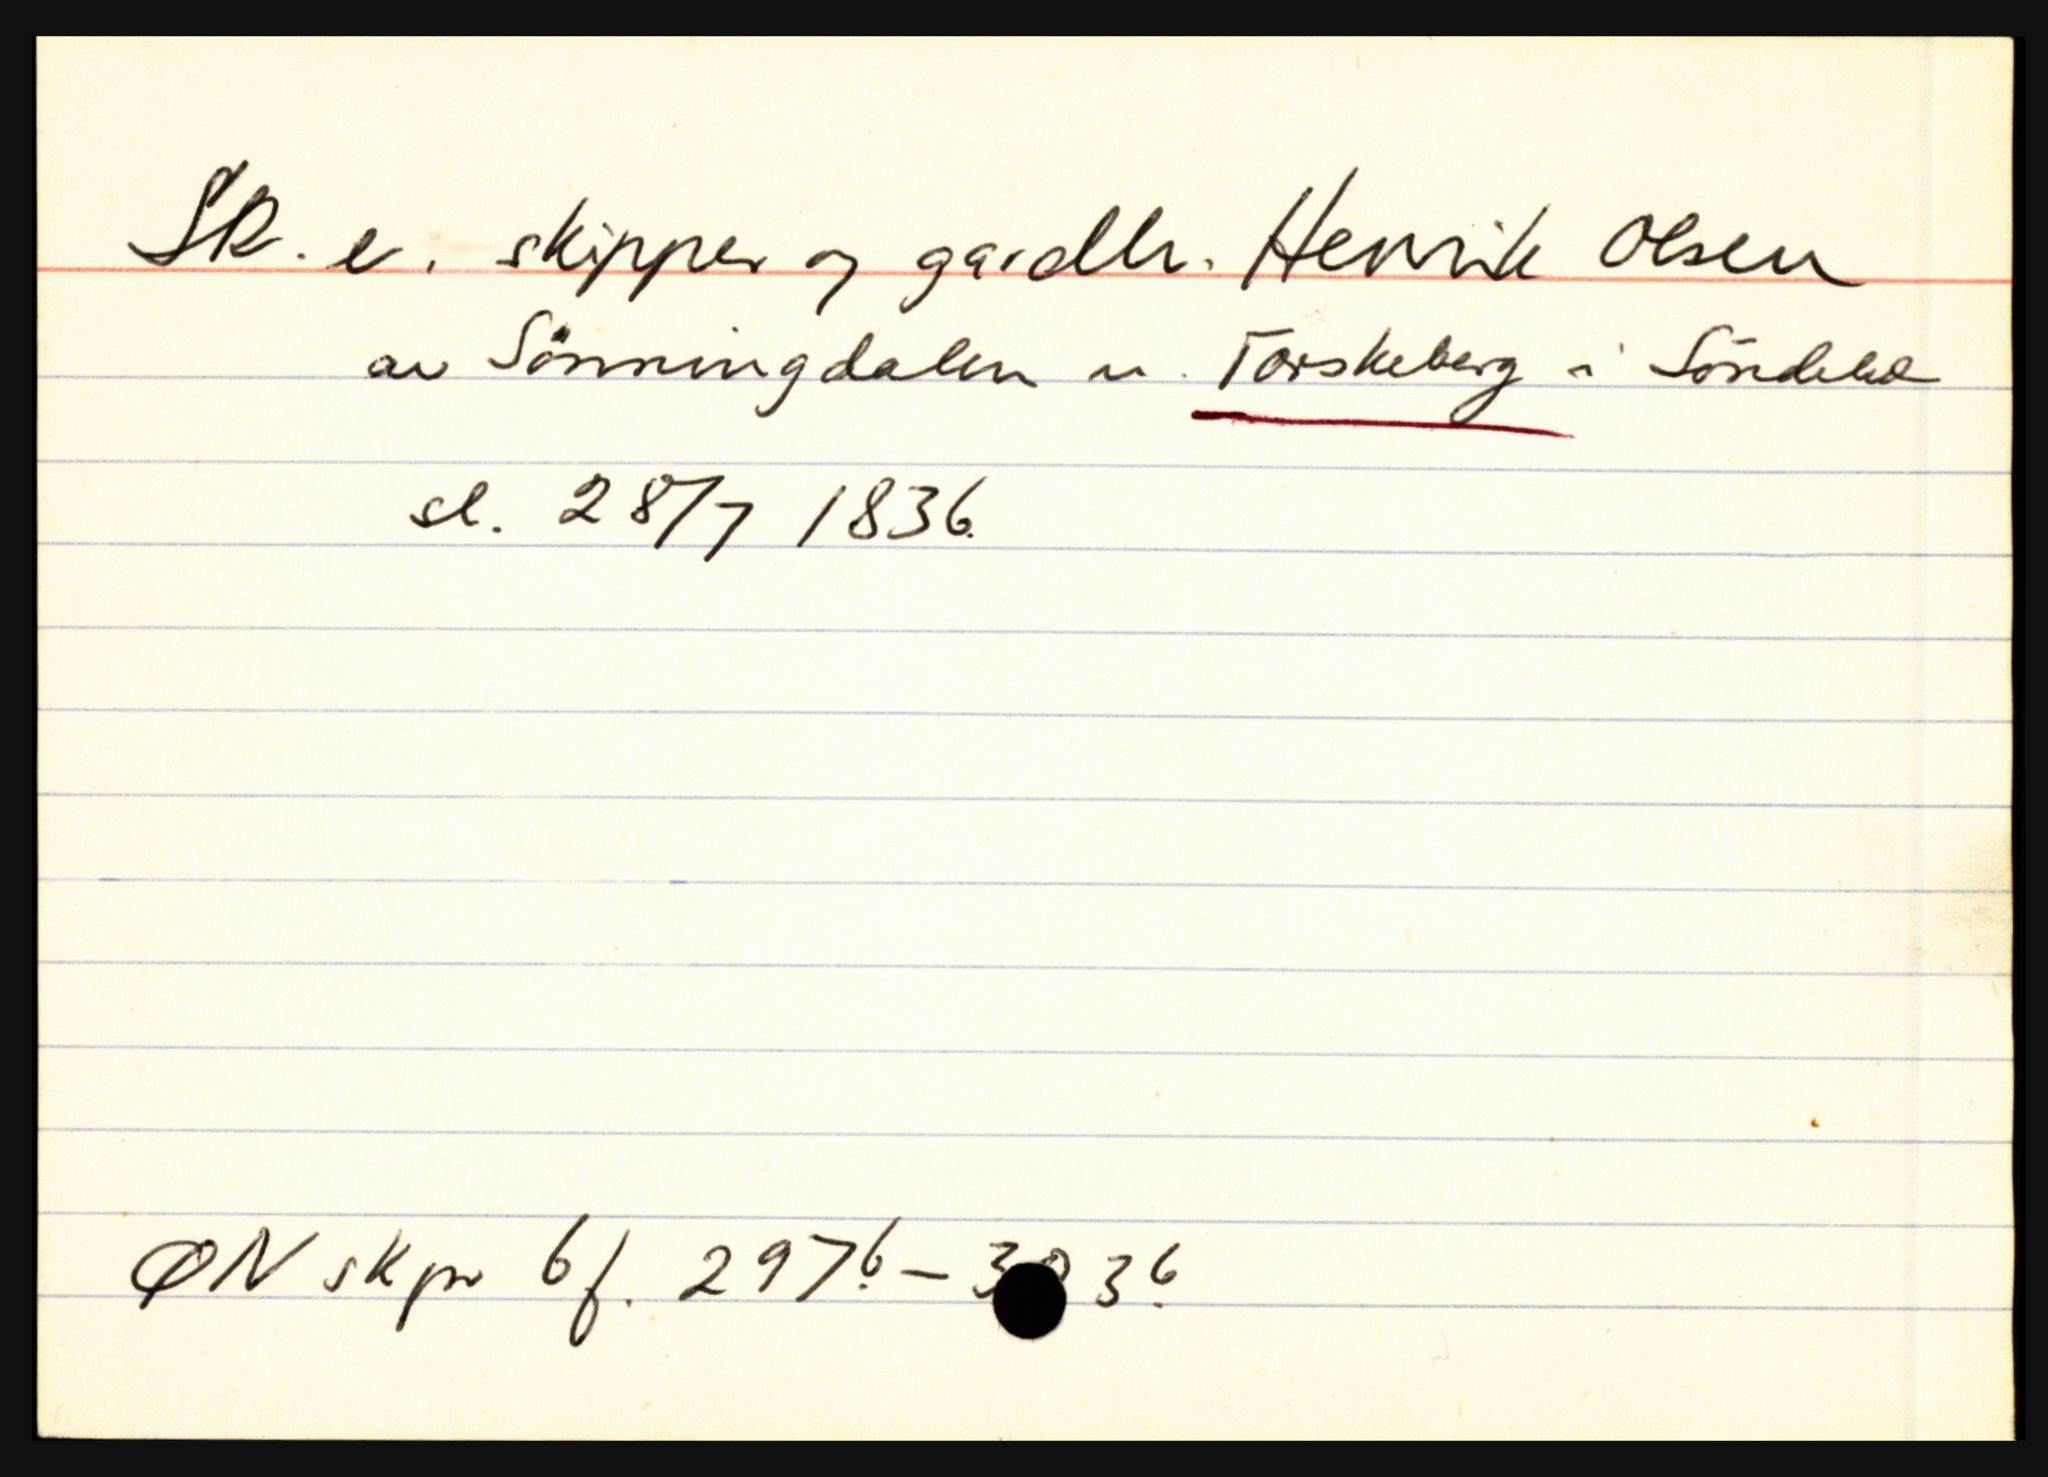 Sk. e. skipper og gårdbr. Henrik Olsen
av Sönningdalen u. Torskeberg i Söndeled
sl. 28/7 1836.
ØN skpr 6 f. 297b – 303b